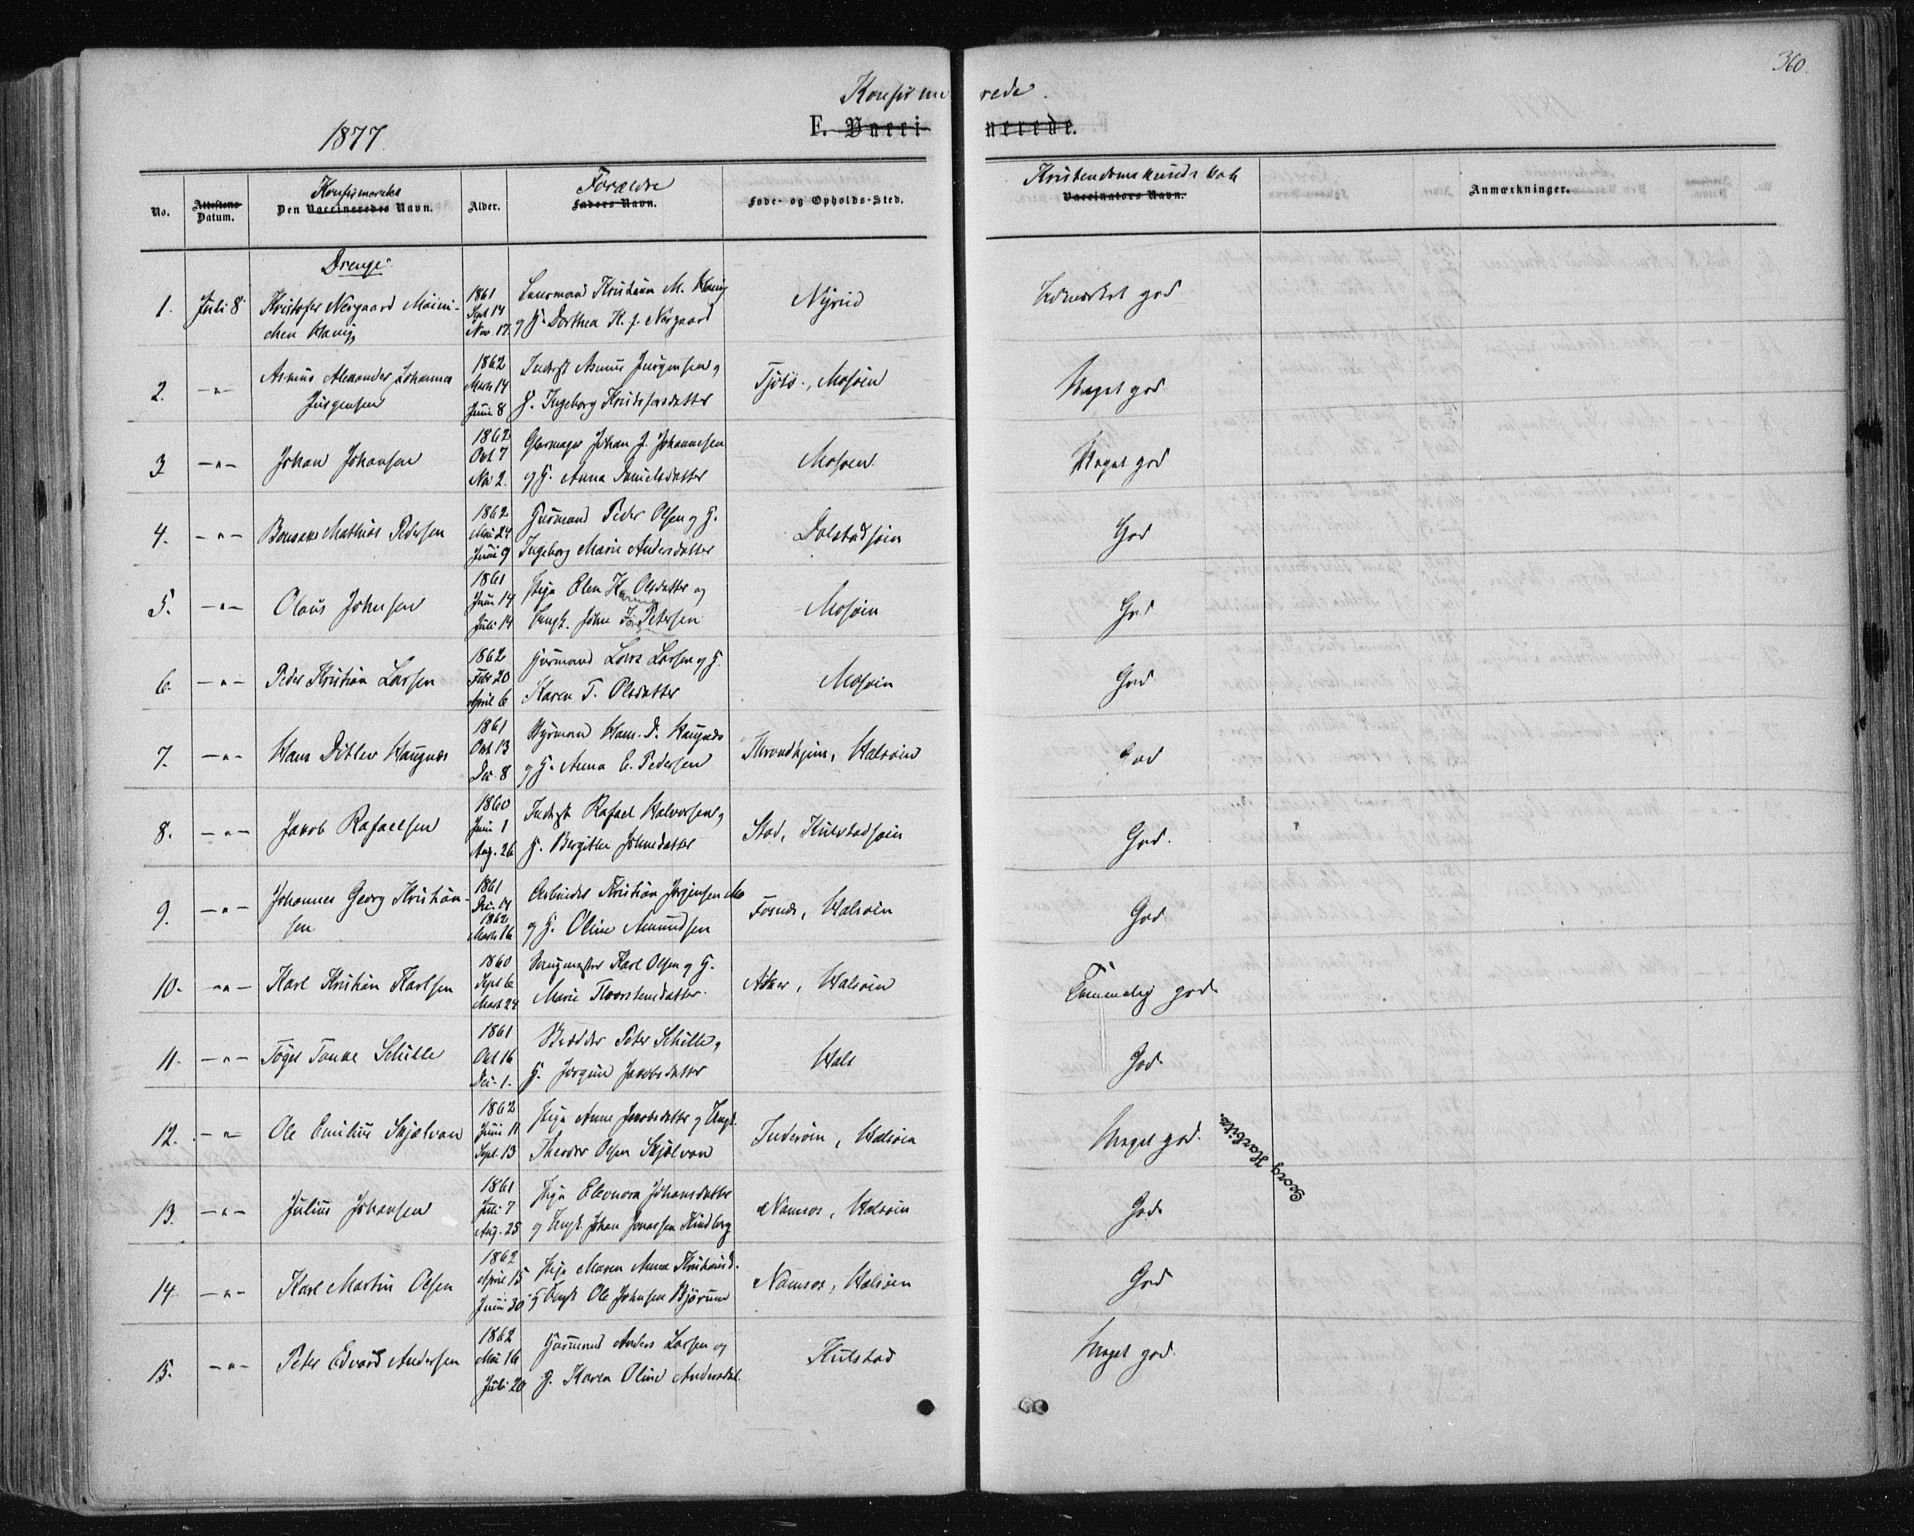 360.
Konfirmerede.
1877.
F. Vaccinerede.
No.
Attestens Datum.
Konfirmeredes
Den Vaccineredes Navn.
Alder.
Forældre
Faders Navn.
Føde- og Opholds-Sted.
Kristendomskundskab
Vaccinators Navn.
Anmærkninger.
Drenge.
1. Juli 8 Kristofer Nergaard Møini-
chen Havig
1861 Sept 14 Nov. 17
Kristian M. Havig
og H. Dorthea H. f. Nergaard
Nyrud
Udmerket god
2. -"- Asmus Alexander Johannes
Jürgensen
1862 Marts 14 Juni 8
Inderst Asmus Jürgensen og
H. Ingeborg Kristofersdatter
Tjøtø, Mosøen
Meget god
3. -"- Johan Johansen
1862 Oct 7 Nov 2.
Glarmager Johan J. Johannesen
og H. Anna Danielsdatter
Mosøen.
Meget god
4. -"- Bonsak Mathias Pedersen
1862 Mai 24 Juni 9
Husmand Peder Olsen og H.
Ingeborg Marie Andersdatter
Dolstadsøen
God
5. -"- Olaus Johnsen
1861 Juni 14 Juli 14
Pige Elen H Olsdatter og
Ungk. John Petersen
Mosøen
God
6. -"- Peder Kristian Larsen
1862 Febr 20 April 6
Husmand Lars Larsen og H.
Karen T. Olsdatter
Mosøen
God
7. -"- Hans Ditlev Haugnæs
1861 Oct 13 De. 8
Styrmand Hans D. Haugnæs
og H. Anna E. Pedersen
Throndhjem, Halsøen
God
8. -"- Jakob Rafaelsen
1860 Juni 1 Aug. 26
Inderst Rafael Halvorsen og
H. Bergitha Johnsdatter
Stod, Kulstadsøen
God.
9. -"- Johannes Georg Kristian-
sen
1861 De. 1862 Marts 16
Arbeider Kristian Jørgensen Mo
og H. Oline Amundsen
Fosnæs, Halsøen
God.
10. -"- Karl Kristian Karlsen
1860 Sept 6 Marts 24
Karl Olsen og H.
Marie Thorstensdatter.
Asker, Halsøen
Temmelig god.
11. -"- Töger Tanke Schulle
1861 Oct 16 De. 1.
Peter Schulle og
H. Jørgine Jakobsdatter
Hals
God.
12. -"- Ole Emilius Skjelvan
1862 Juni 11 Sept. 13
Pige Anne Jakobsdatter og Ungk.
Theodor Olsen Skjelvan
Inderøen, Halsøen
Meget god.
Georg Harbitz.
13. -"- Julius Johansen
1861 Juli 7 Aug. 25
Pige Eleonora Johansdatter
og Ungk. Johan Jonassen Kindberg
Namsos, Halsøen
God.
14. -"- Karl Martin Olsen
1862 April 15 Juni 30
Pige Maren Anna Kristiansd.
og Ungk Ole Johnsen Bjørum
Namsos, Halsøen
God
15. -"- Peter Edvard Andersen
1862 Mai 16 Juli 20
Husmand Anders Larsen og
H. Karen Oline Andersdat.
Kulstad
Meget god.